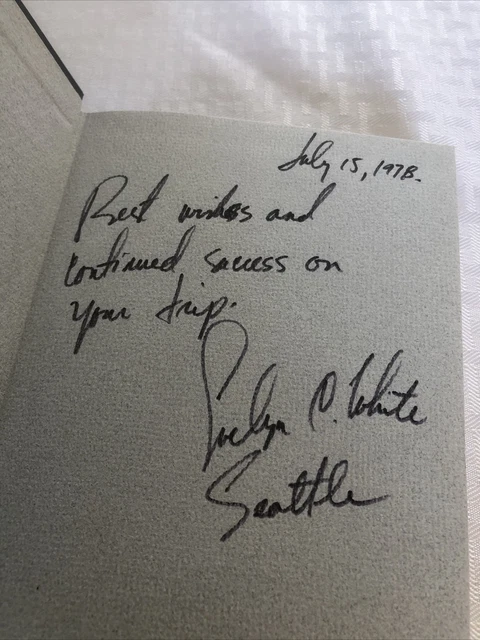 July 15, 1978.
Best wishes and
continued success on
your trip.
Evelyn C. White
Seattle